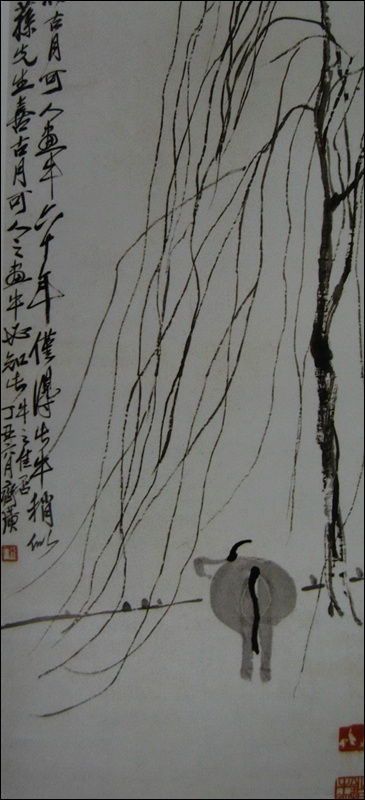 古月可人畫牛六十年僅得此牛稍似
先生喜古月可人之畫牛必知此牛之佳否丁丑六月齊璜